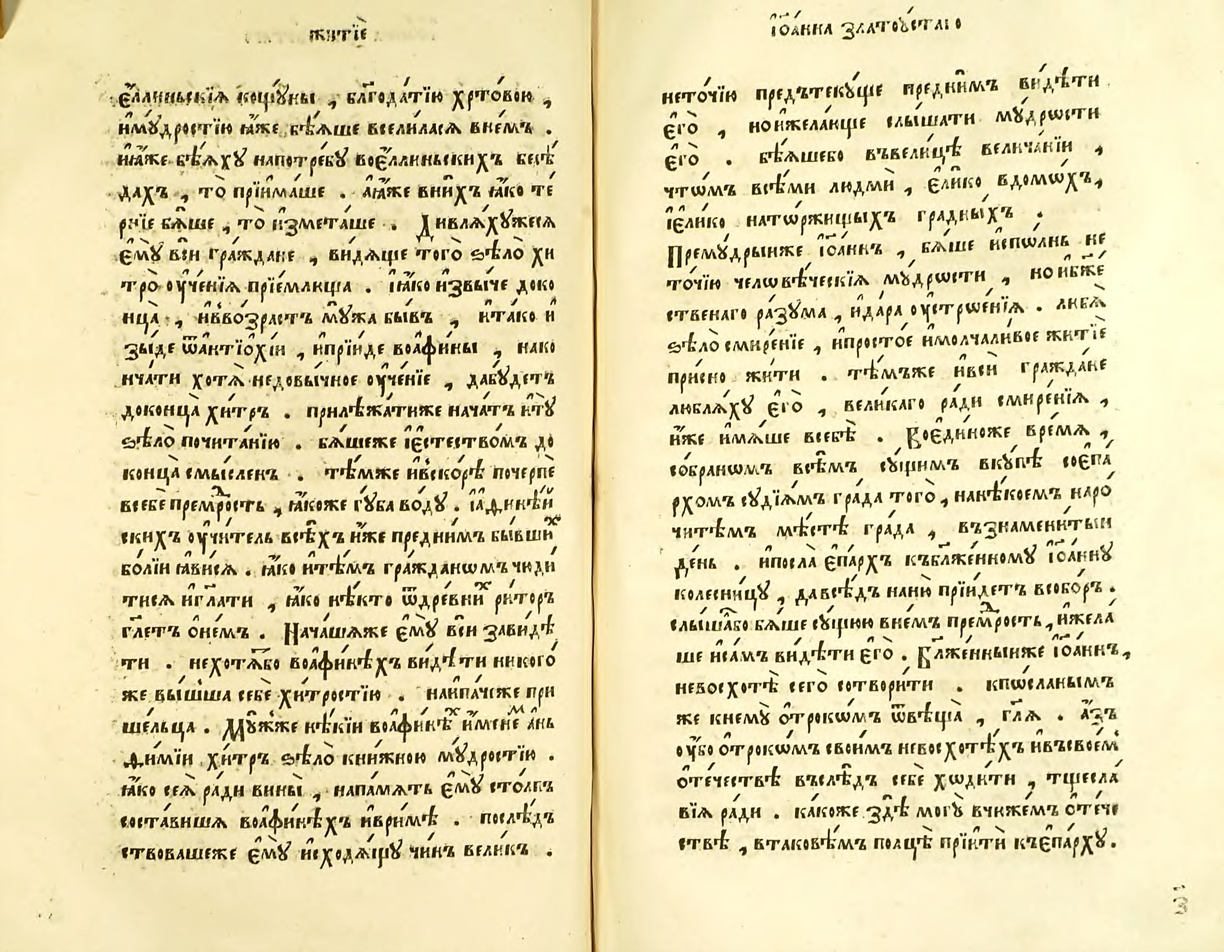 житїѐ
є҆́ллиньскїѧ кощꙋ́ны , бл҃года́тїю хрⷭ҇то́вою ,
и҆мꙋ́дростїю ꙗ҆́же бѣ́ѧше всели́ласѧ вне́мъ .
и҆ꙗ҆́же бѣ́ѧхꙋ напотре́бꙋ воє҆́ллиньскихъ бесѣ́
дахъ , то̀ прїима́ше . аꙗ҆́же вни́хъ ꙗ҆́ко те́
рнїе бѧ́ше , то̀ и҆змета́ше . Дивлѧ́хꙋжесѧ
є҆мꙋ̀ всѝ гра́ждане , ви́дѧще того̀ ѕѣло̀ хи
тро̀ ᲂу҆че́нїѧ прїе́млюща . ꙗ҆́ко и҆звы́че доко
нца̀ , и҆ввозрастъ мꙋ́жа бы́въ , и҆та́ко и҆
зы́де ѿа҆нтїо҆хі́и , и҆прїи́де воа҆ѳи́ны , нако
нча́ти хотѧ̀ недовы́чное ᲂу҆че́нїе , дабꙋ́детъ
доконца̀ хи́тръ . прилѣжа́тиже нача́тъ и҆тꙋ̀
ѕѣло̀ почита́нїю . бѧ́шеже і҆єстество́мъ до
конца̀ смы́сленъ . тѣ́мже и҆вско́рѣ почерпе́
всебѐ премрⷣость , ꙗ҆́коже гꙋ́ба во́дꙋ . І҆а҆ѳинѣ́й
скихъ ᲂу҆чи́тель всѣ́хъ и҆́же предни́мъ бы́вшиⷯ
бо́лїи ꙗ҆ви́сѧ . ꙗ҆́ко и҆тѣ́мъ гра́жданѡмъ чюди́
тисѧ и҆гл҃ати , ꙗ҆́ко нѣ́кто ѿдре́вниⷯ ри́торъ
гл҃етъ ѻ҆не́мъ . Нача́шѧже є҆мꙋ̀ всѝ зави́дѣ
ти . нехотѧ́бо воа҆ѳи́нѣхъ ви́дѣти никого́
же вы́шьша себѐ хи́тростїю . наипа́чеже при
ше́льца . Мꙋ́жже нѣ́кїи воа҆ѳи́нѣⷯ и҆́менеⷨ а҆нь
ѳи́мїи хи́тръ ѕѣло̀ кни́жною мꙋ́дростїю .
ꙗ҆́ко сеѧ̀ ра́ди вины̀ , напа́мѧть є҆мꙋ̀ сто́лпъ
соста́вишѧ воа҆ѳи́нѣхъ и҆ври́мѣ . послѣ́дъ
ствовашеже є҆мꙋ̀ и҆сходѧ́щꙋ чи́нъ вели́къ .
і҆ѡ҆а́нна златоꙋ́стаго
нето́чїю предътекꙋ́ще предни́мъ ви́дѣти
є҆го̀ , нои҆жела́юще слы́шати мꙋ́дрѡсти
є҆го̀ . бѣ́ѧшебо въвели́цѣ велича́нїи ,
что́мъ всѣ́ми людмѝ , є҆ли́ко вдомо́хъ ,
і҆є҆ли́ко нато́ржищыхъ гра́дныхъ .
Премꙋ́дрыиже і҆ѡа́ннъ , бѧ́ше и҆спо́лнь не
то́чїю человѣ́ческїѧ мꙋ́дрѡсти , нои҆бж҃е́
ственаго ра́зꙋма , и҆да́ра ᲂу҆стрѡе́нїѧ . любѧ̀
ѕѣло̀ смире́нїе , и҆просто́е и҆молчали́вое житїѐ
при́сно жи́ти . тѣ́мъже и҆всѝ гра́ждане
люблѧ́хꙋ є҆го̀ , вели́каго ра́ди смире́нїѧ ,
и҆́же и҆мѧ́ше всебѣ̀ . Воеди́ноже вре́мѧ ,
со́браномъ всѣ́мъ сꙋ́щимъ вкꙋ́пѣ сое҆па́
рхомъ сꙋдїѧ́мъ гра́да того̀ , нанѣ́коемъ наро
чи́тѣмъ мѣ́стѣ гра́да , възнамени́тыи
де́нь . и҆посла̀ є҆па́рхъ къбл҃же́нномꙋ і҆ѡа́ннꙋ
колесни́цꙋ , давсѣ́дъ наню̀ прїи́детъ всобо́ръ .
слы́шалбо бѧ́ше сꙋ́щюю вне́мъ премрⷣость , и҆жела́
ше и҆са́мъ ви́дѣти є҆го̀ . Бл҃же́нныиже і҆ѡа́ннъ ,
невосхотѣ̀ сего̀ сотвори́ти . кпо́сланымъ
же кнемꙋ̀ ѻ҆́трокомъ ѿвѣща̀ , гл҃ѧ . а҆́зъ
ᲂу҆́бо ѻ҆́трокомъ свои́мъ невосхотѣ́хъ и҆въсвое́м
ѻ҆те́чествѣ въслѣ́дъ себѐ хѡди́ти , тщесла́
вїѧ ра́ди . ка́коже здѣ̀ могꙋ̀ вчюже́мъ ѻ҆те́че
ствѣ , втако́вѣмъ полцѣ̀ прїитѝ къє҆па́рхꙋ .
з҃